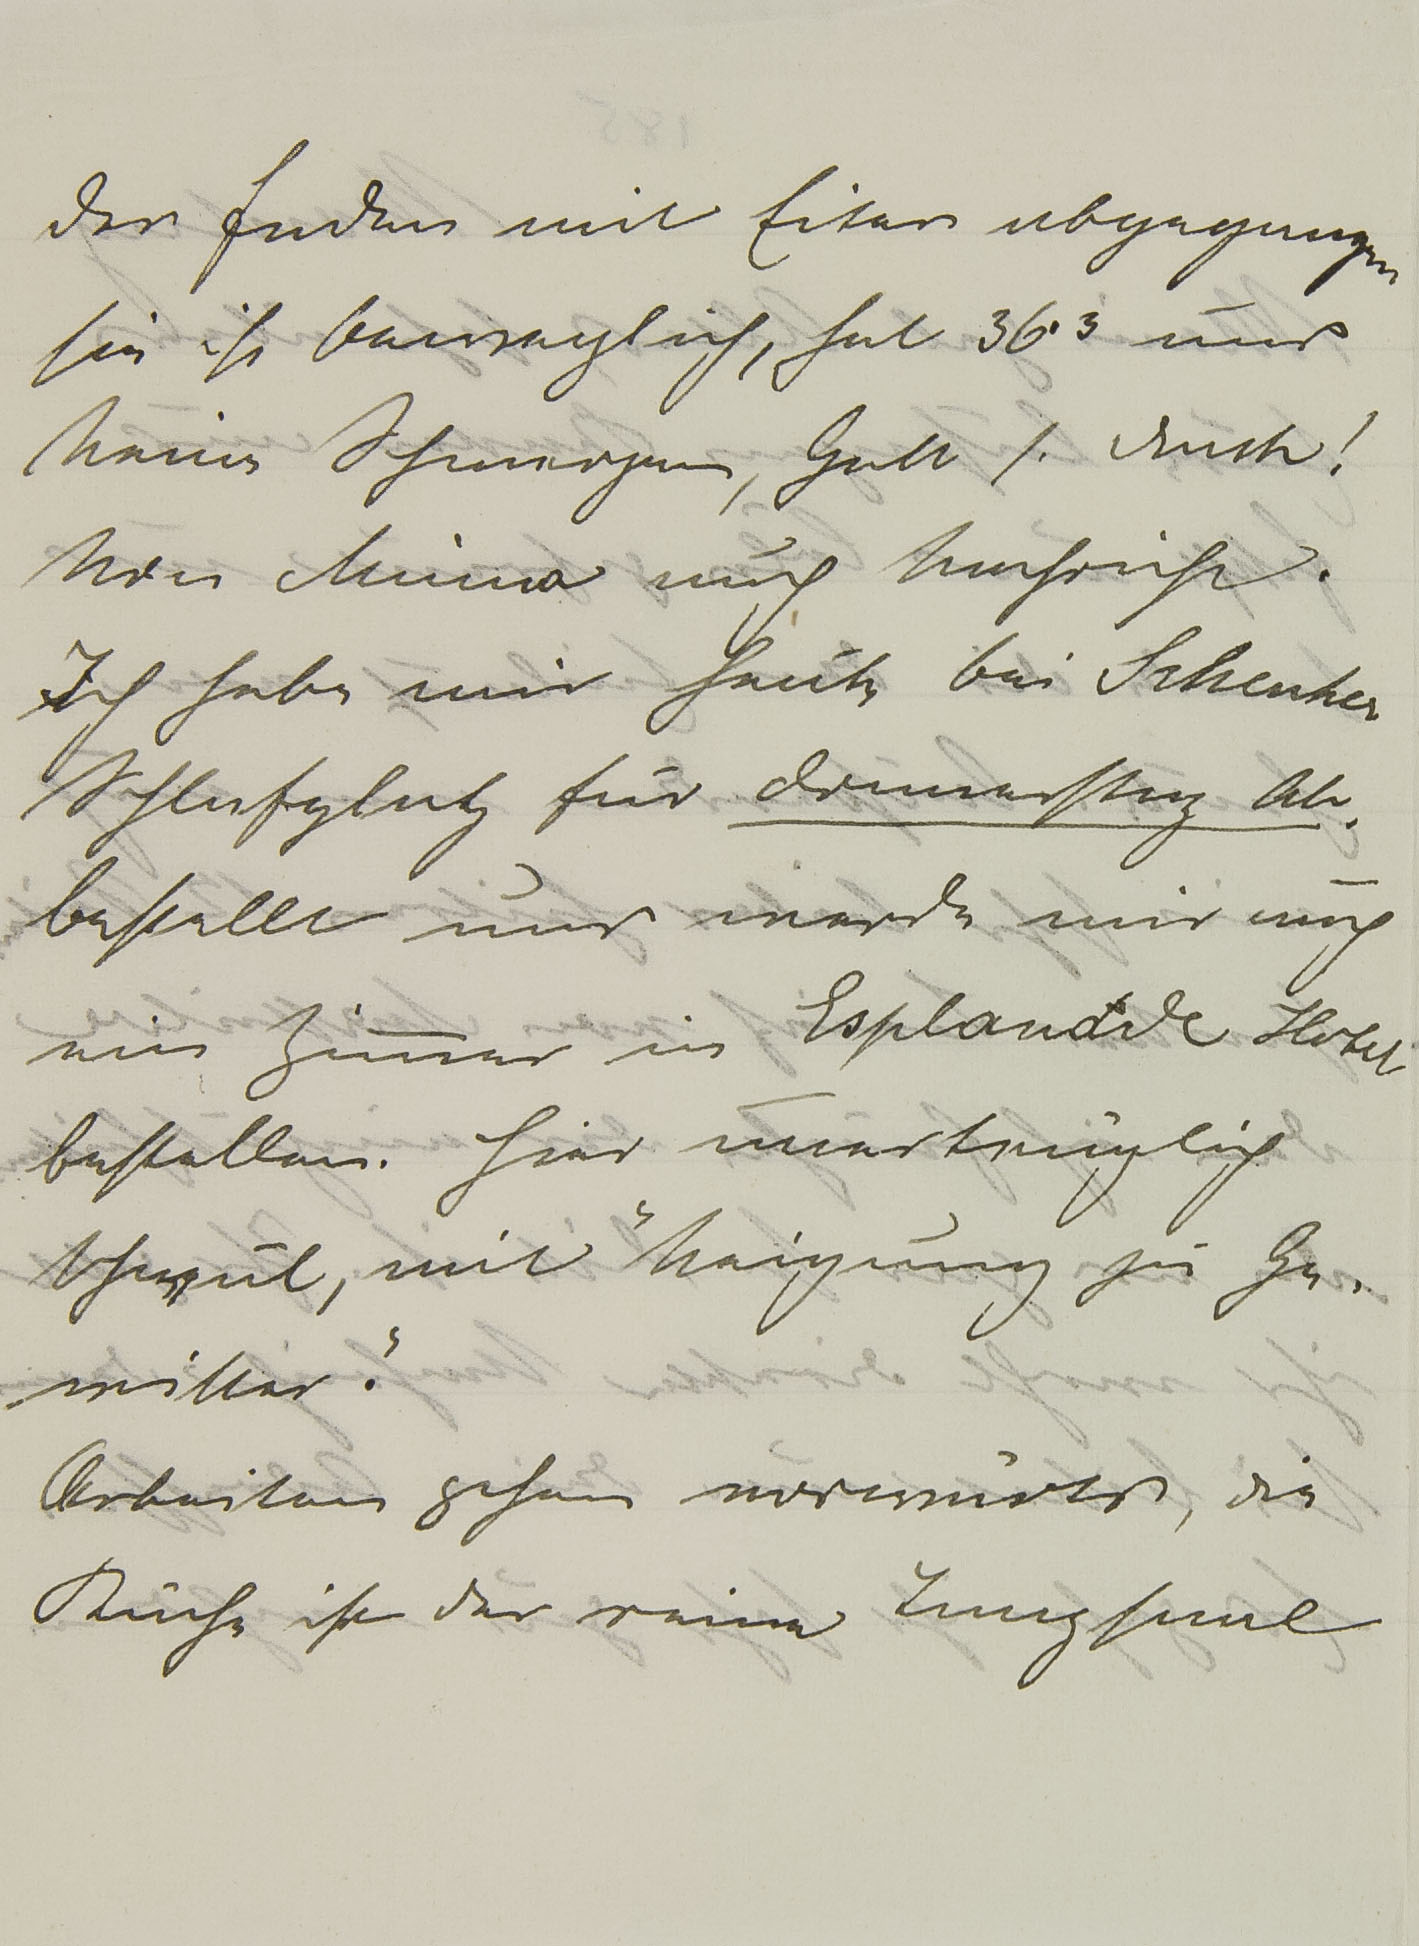 der Faden mit Eiter abgegangen
sie ist beweglich, hat 36·3 und
keine Schmerzen, Gott s. Dank!
Von Mima auch Nachricht.
Ich habe mir heute bei Schenker
Schlafplatz für Donnerstag Ab.
bestellt und werde mir auch
ein Zimmer in Esplanade Hotel
bestellen. Hier unerträglich
schwül, mit "Neigung zu Ge-
witter".
Arbeiten gehen vorwärts, die
Küche ist der reine Tanzsaal